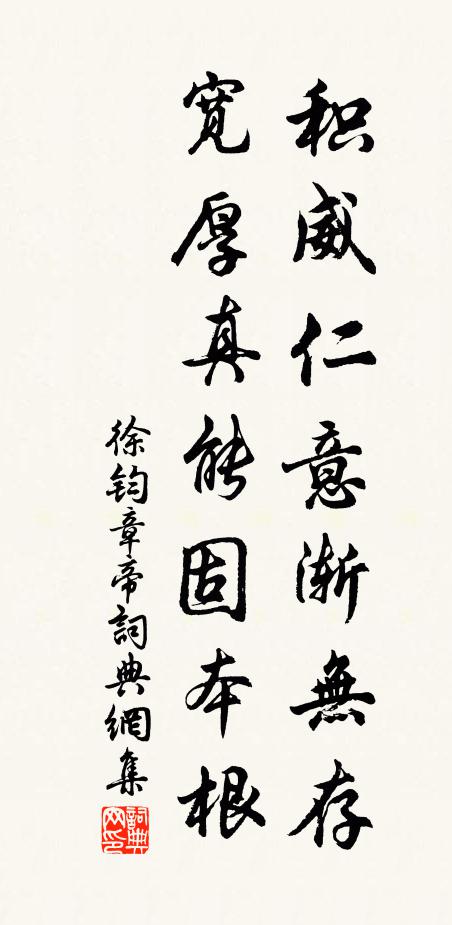 积威仁意渐無存
宽厚真能固本根
徐钧章帝詞典網集
詞典网印